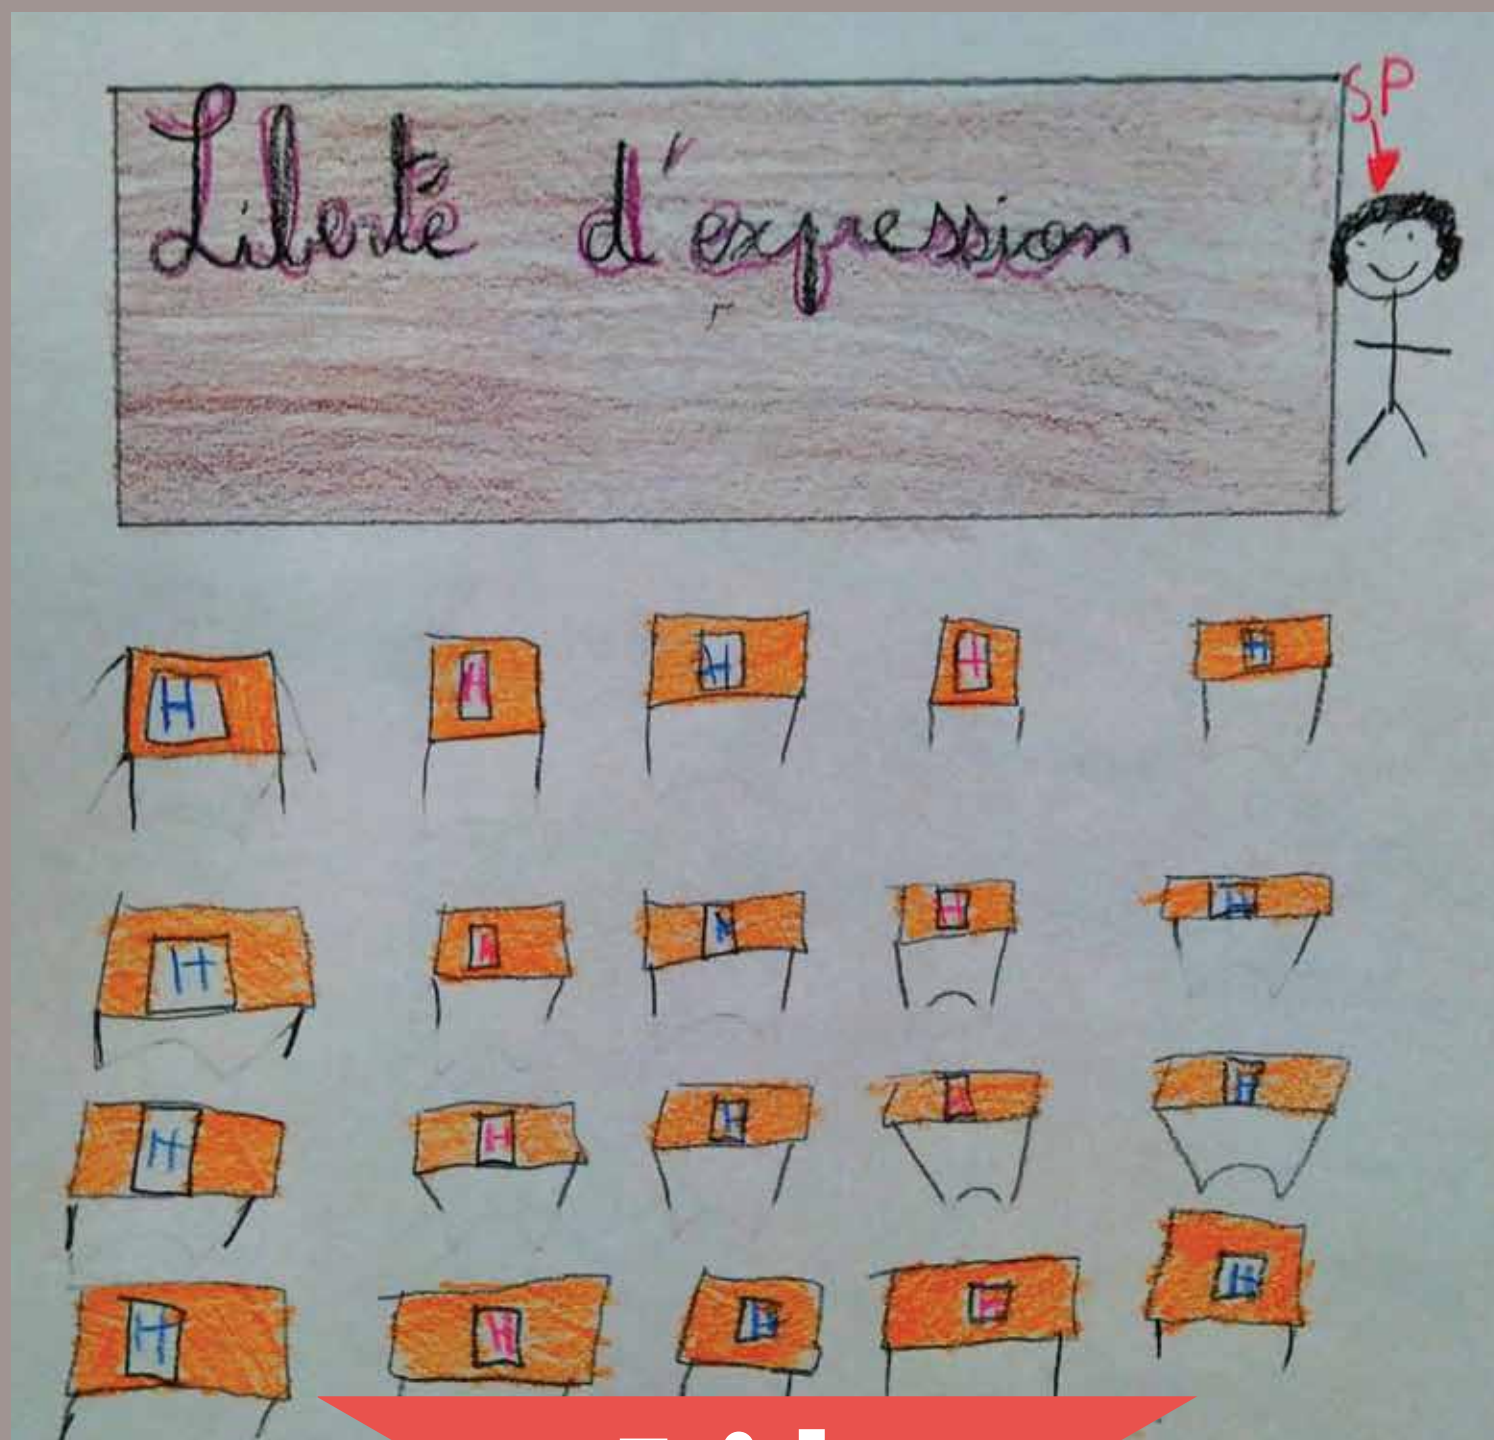 SP
Liberté d'expression
H H H H H
H H H H H
H H H H H
H H H H H